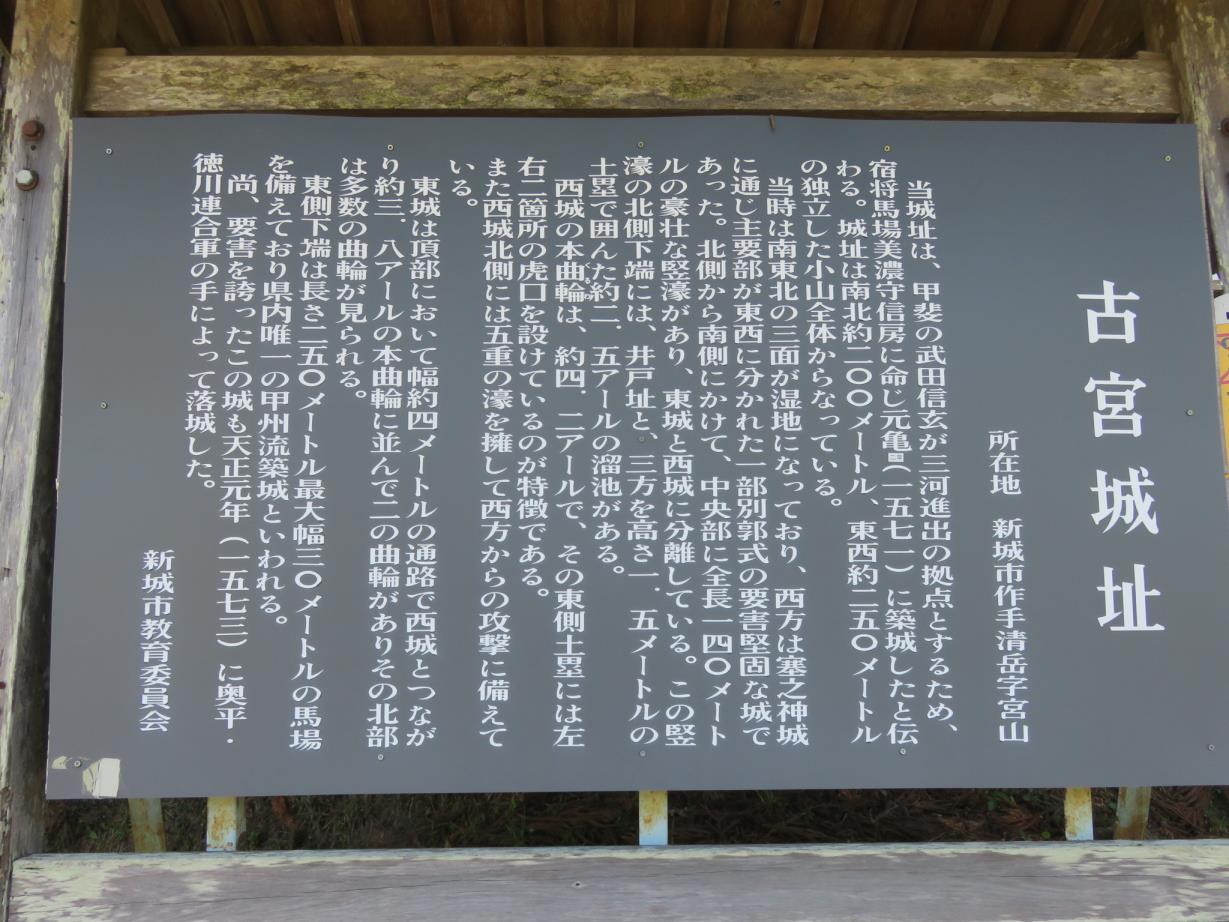 古宮城址
所在地　新城市作手清岳字宮山
当城址は、甲斐の武田信玄が三河進出の拠点とするため、
宿将馬場美濃守信房に命じ元亀二（一五七一）に築城したと伝
わる。城址は南北約二〇〇メートル、東西約二五〇メートル
の独立した小山全体からなっている。
当時は南東北の三面が湿地になっており、西方は塞之神城
に通じ主要部が東西に分かれた一部別郭式の要害堅固な城で
あった。北側から南側にかけて、中央部に全長一四〇メート
ルの豪壮な竪濠があり、東城と西城に分離している。この竪
濠の北側下端には、井戸址と、三方を高さ一．五メートルの
土塁で囲んだ約二．五アールの溜池がある。
西城の本曲輪は、約四．二アールで、その東側土塁には左
右二箇所の虎口を設けているのが特徴である。
また西城北側には五重の濠を擁して西方からの攻撃に備えて
いる。
東城は頂部において幅約四メートルの通路で西城とつなが
り約三．八アールの本曲輪に並んで二の曲輪がありその北部
は多数の曲輪が見られる。
東側下端は長さ二五〇メートル最大幅三〇メートルの馬場
を備えており県内唯一の甲州流築城といわれる。
尚、要害を誇ったこの城も天正元年（一五七三）に奥平・
徳川連合軍の手によって落城した。
新城市教育委員会